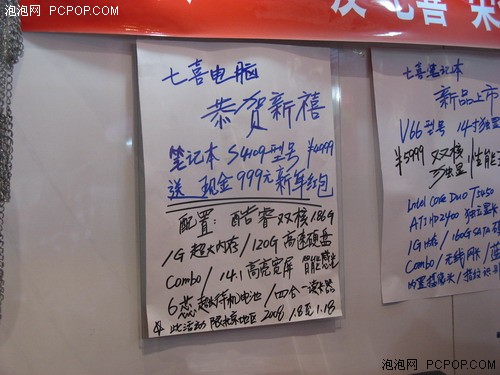 泡泡网 PCPOP.COM
泡泡网 PCPOP.COM
七喜电脑
恭贺新禧
笔记本 S4109型号 ¥4999
送 现金999元新年红包
配置: 酷睿双核1.86G
1G超大内存/120G高速硬盘
Combo/14.1高亮宽屏
6芯超长待机电池/四合一读卡器
此活动限北京地区 2008 1.8至1.18
七喜笔记本
新品上市
V66型号 14寸独显
¥5999 双核 性能
独显
Intel Core Duo T5450
ATI HD2400 独立显卡
1G内存/160G SATA
Combo/无线网卡/蓝
内置摄像头/指纹识
泡泡网 PCPOP.COM